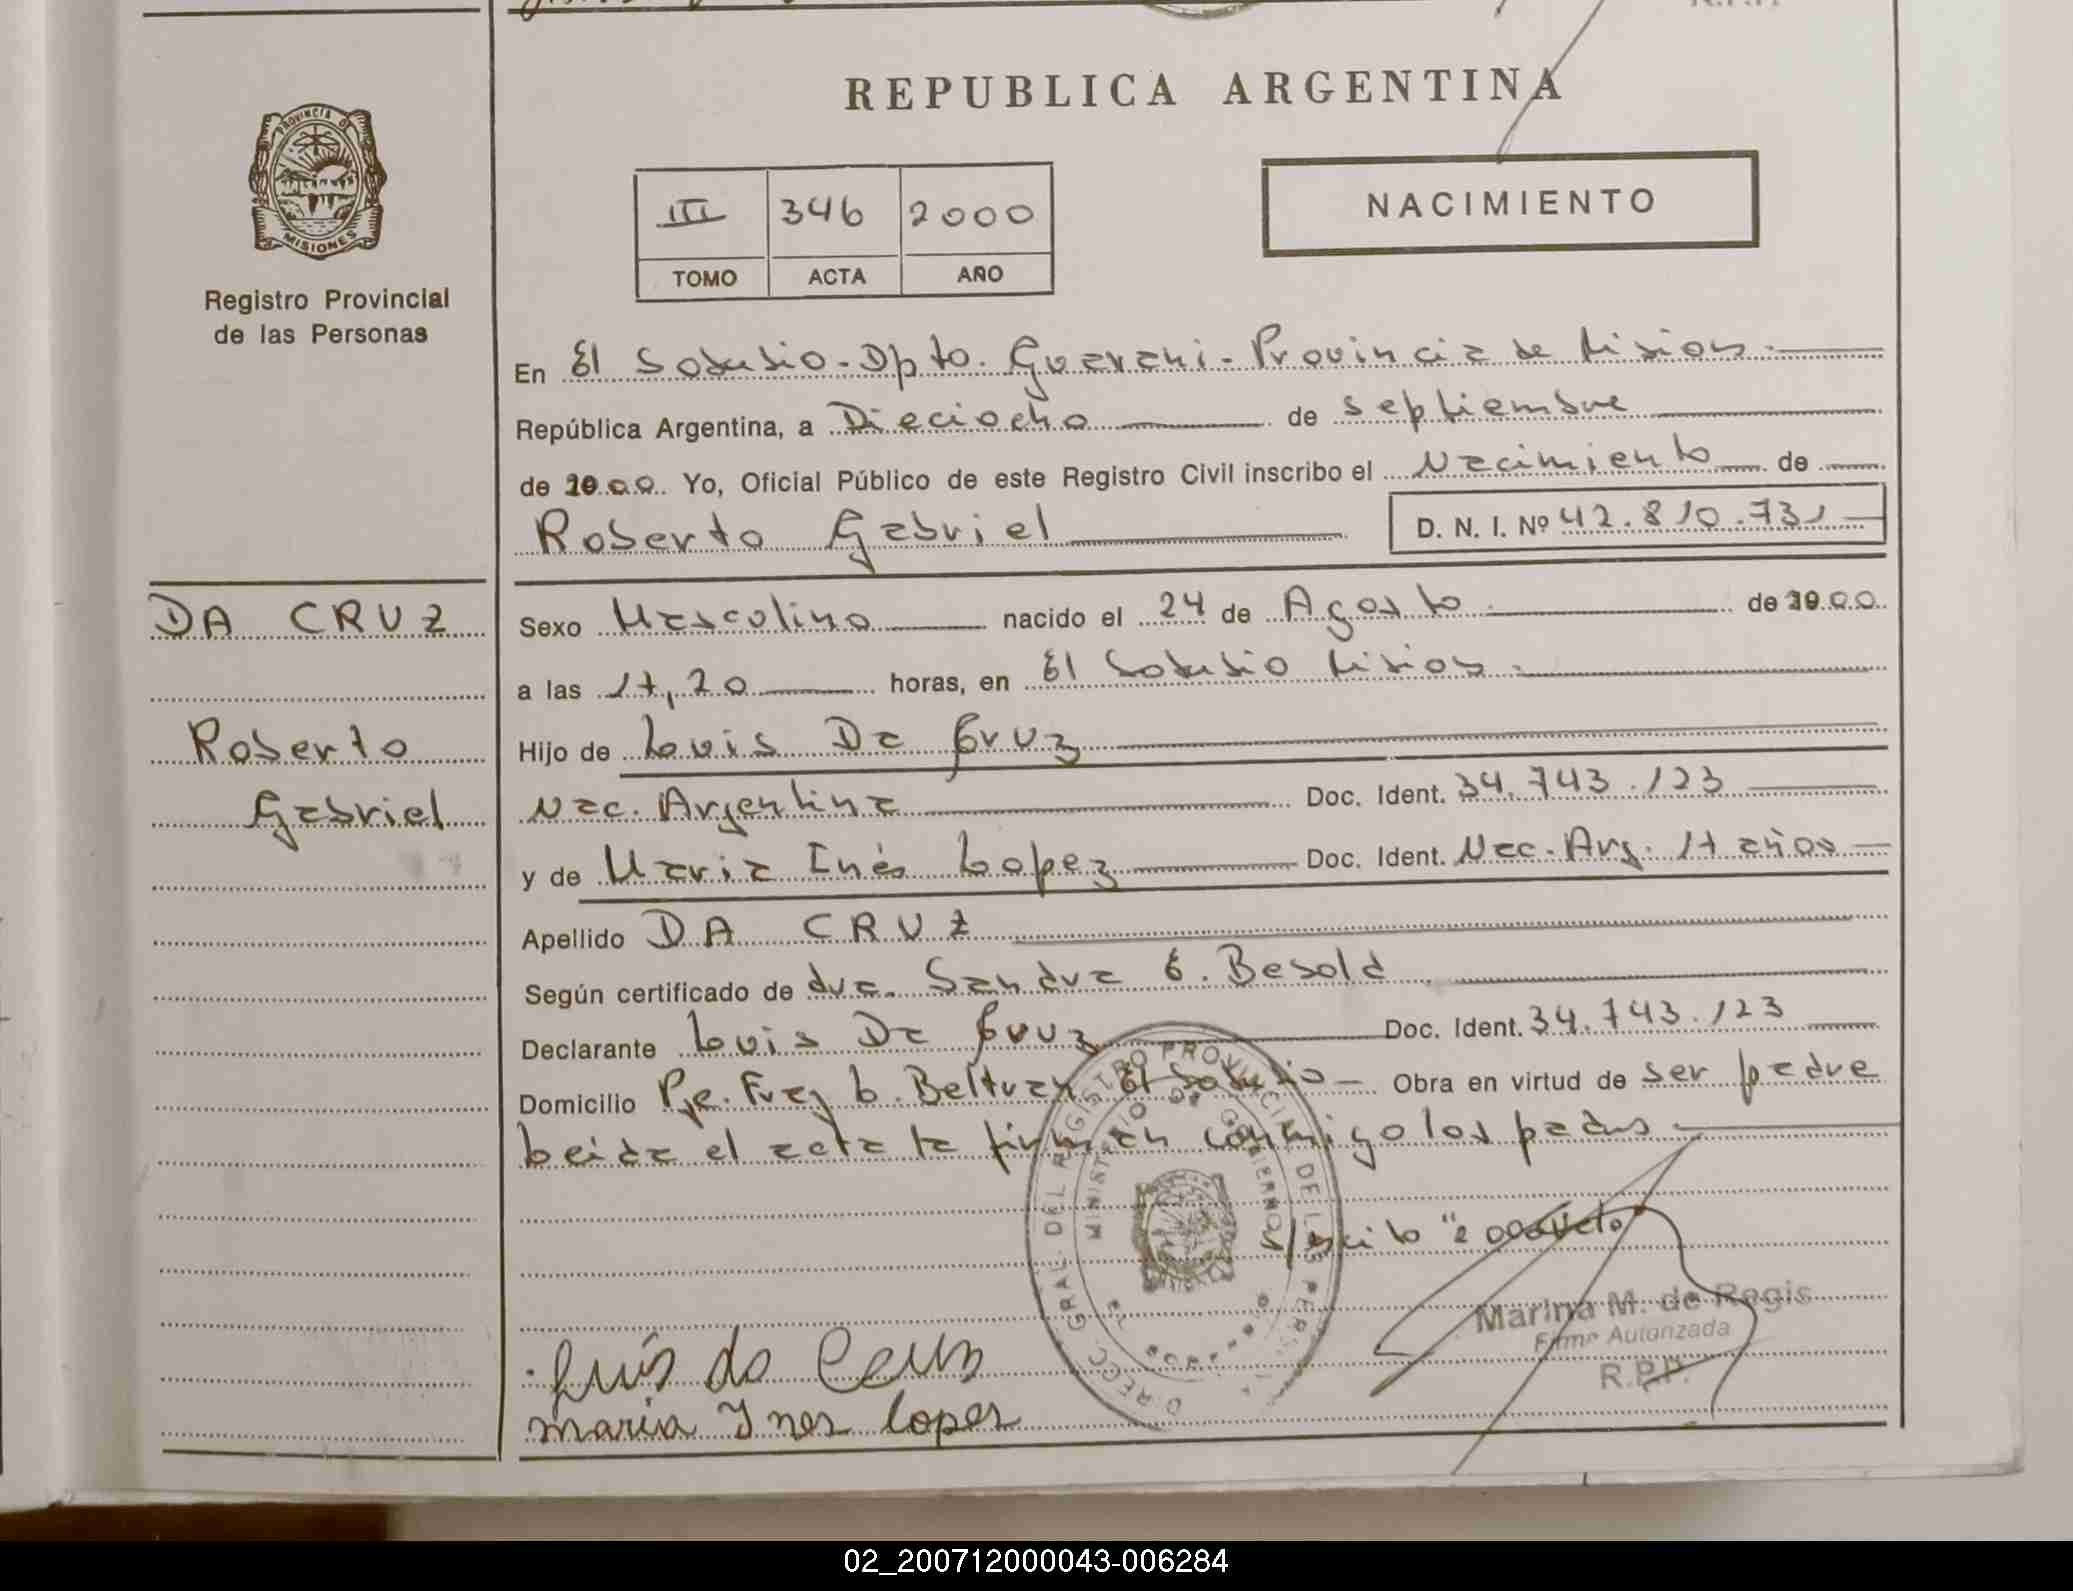 REPUBLICA ARGENTINA
PROVINCIA DE
MISIONES
Registro Provincial
de las Personas
III 346 2000
TOMO ACTA AÑO
NACIMIENTO
En El Soberbio - Dpto. Guarani - Provincia de Misiones.
República Argentina, a Dieciocho de septiembre
de 2000. Yo, Oficial Público de este Registro Civil inscribo el Nacimiento de
Roberto Gabriel
D. N. I. Nº 42.810.731
DA CRUZ
Roberto
Gabriel
Sexo Masculino nacido el 24 de Agosto de 2000.
a las 17,20 horas, en El Soberbio Misiones.
Hijo de Luis Da Cruz
Nac. Argentina Doc. Ident. 34.743.123
y de Maria Inés Lopez Doc. Ident. Nac. Arg. 17 años
Apellido DA CRUZ
Según certificado de dra. Sandra E. Besold
Declarante Luis Da Cruz Doc. Ident. 34.743.123
Domicilio Pje. Fray L. Beltran El Soberbio Obra en virtud de ser padre
Leida el acta la firman conmigo los padres
DIRECC. GRAL. DEL REGISTRO PROVINCIAL DE LAS PERSONAS
MINISTERIO DE GOBIERNO
Marina M. de Regis
Firma Autorizada
R.P.P.
Luis da Cruz
maria Ines lopez
02_200712000043-006284